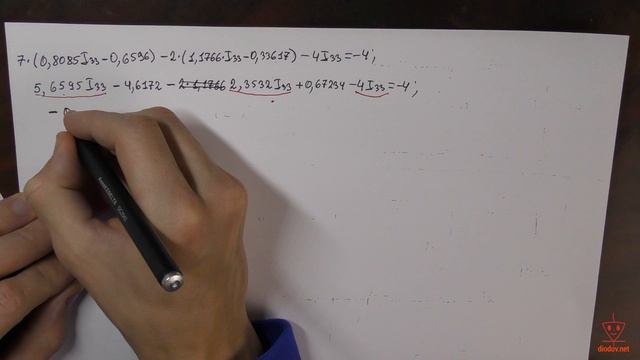 7·(0,8085I₃₃-0,6596) -2·(1,1766·I₃₃-0,33617) -4I₃₃=-4;
5,6595I₃₃ - 4,6172 - 2·1,1766 2,3532I₃₃ +0,67234 -4I₃₃=-4;
- 0
diodov.net